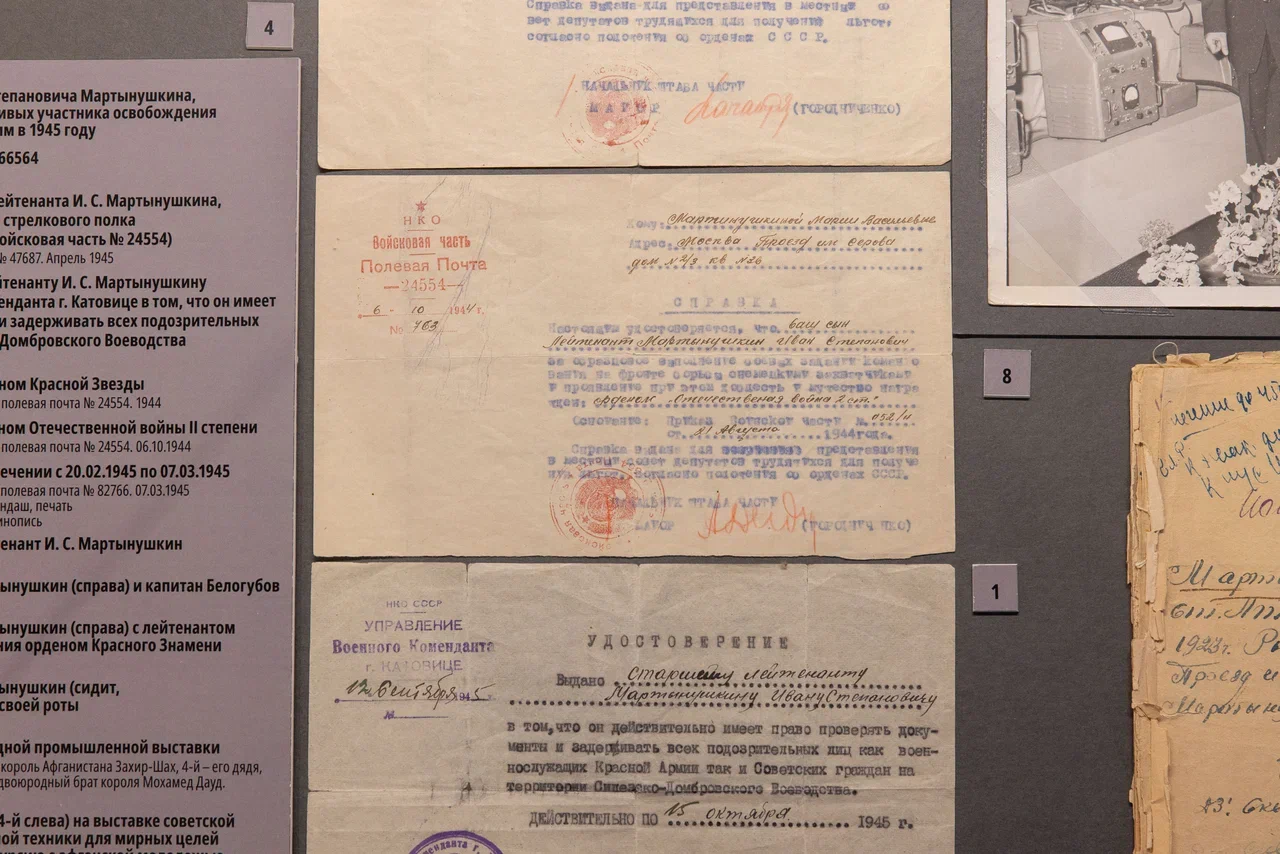 4
тепановича Мартынушкина,
ивых участника освобождения
им в 1945 году
66564
ейтенанта И. С. Мартынушкина,
стрелкового полка
ойсковая часть № 24554)
№ 47687. Апрель 1945
йтенанту И. С. Мартынушкину
енданта г. Катовице в том, что он имеет
и задерживать всех подозрительных
Домбровского Воеводства
ном Красной Звезды
полевая почта № 24554. 1944
ном Отечественной войны II степени
полевая почта № 24554. 06.10.1944
ечении с 20.02.1945 по 07.03.1945
полевая почта № 82766. 07.03.1945
ндаш, печать
инопись
енант И. С. Мартынушкин
ынушкин (справа) и капитан Белогубов
ынушкин (справа) с лейтенантом
ния орденом Красного Знамени
ынушкин (сидит,
своей роты
дной промышленной выставки
король Афганистана Захир-Шах, 4-й – его дядя,
двоюродный брат короля Мохамед Дауд.
4-й слева) на выставке советской
ной техники для мирных целей
Справка выдана для представления в местный со
вет депутатов трудящихся для получения льгот,
согласно положения об орденах С С С Р.
НАЧАЛЬНИК ШТАБА ЧАСТИ
МАЙОР (ГОРОДНИЧЕНКО)
НКО
Войсковая часть
Полевая Почта
—24554—
6 - 10 1944 г.
№ 763
Кому: Мартинушкиной Марии Васильевне
Адрес: Москва Проезд им Серова
дом №2/3 кв №26
СПРАВКА
Настоящим удостоверяется, что ваш сын
Лейтенант Мартынушкин Иван Степанович
за образцовое выполнение боевых заданий командо
вания на фронте борьбы с немецкими захватчиками
и проявление при этом доблесть и мужество награ
жден: Орденом "Отечественная война 2 ст."
Основание: Приказ Войсковой части № 052/н
от 21 Августа 1944 года.
Справка выдана для представления
в местный совет депутатов трудящихся для получе
ния льгот, согласно положения об орденах СССР.
НАЧАЛЬНИК ШТАБА ЧАСТИ
МАЙОР (ГОРОДНИЧЕНКО)
НКО СССР
УПРАВЛЕНИЕ
Военного Коменданта
г. КАТОВИЦЕ
12 Сентября 1945 г.
№
УДОСТОВЕРЕНИЕ
Выдано старшему лейтенанту
Мартынушкину Ивану Степановичу
в том, что он действительно имеет право проверять доку-
менты и задерживать всех подозрительных лиц как воен-
нослужащих Красной Армии так и Советских граждан на
территории Силезско-Домбровского Воеводства.
ДЕЙСТВИТЕЛЬНО ПО 15 октября 1945 г.
8
1
Март
ст.
1923г.
Проезд и
Мартын